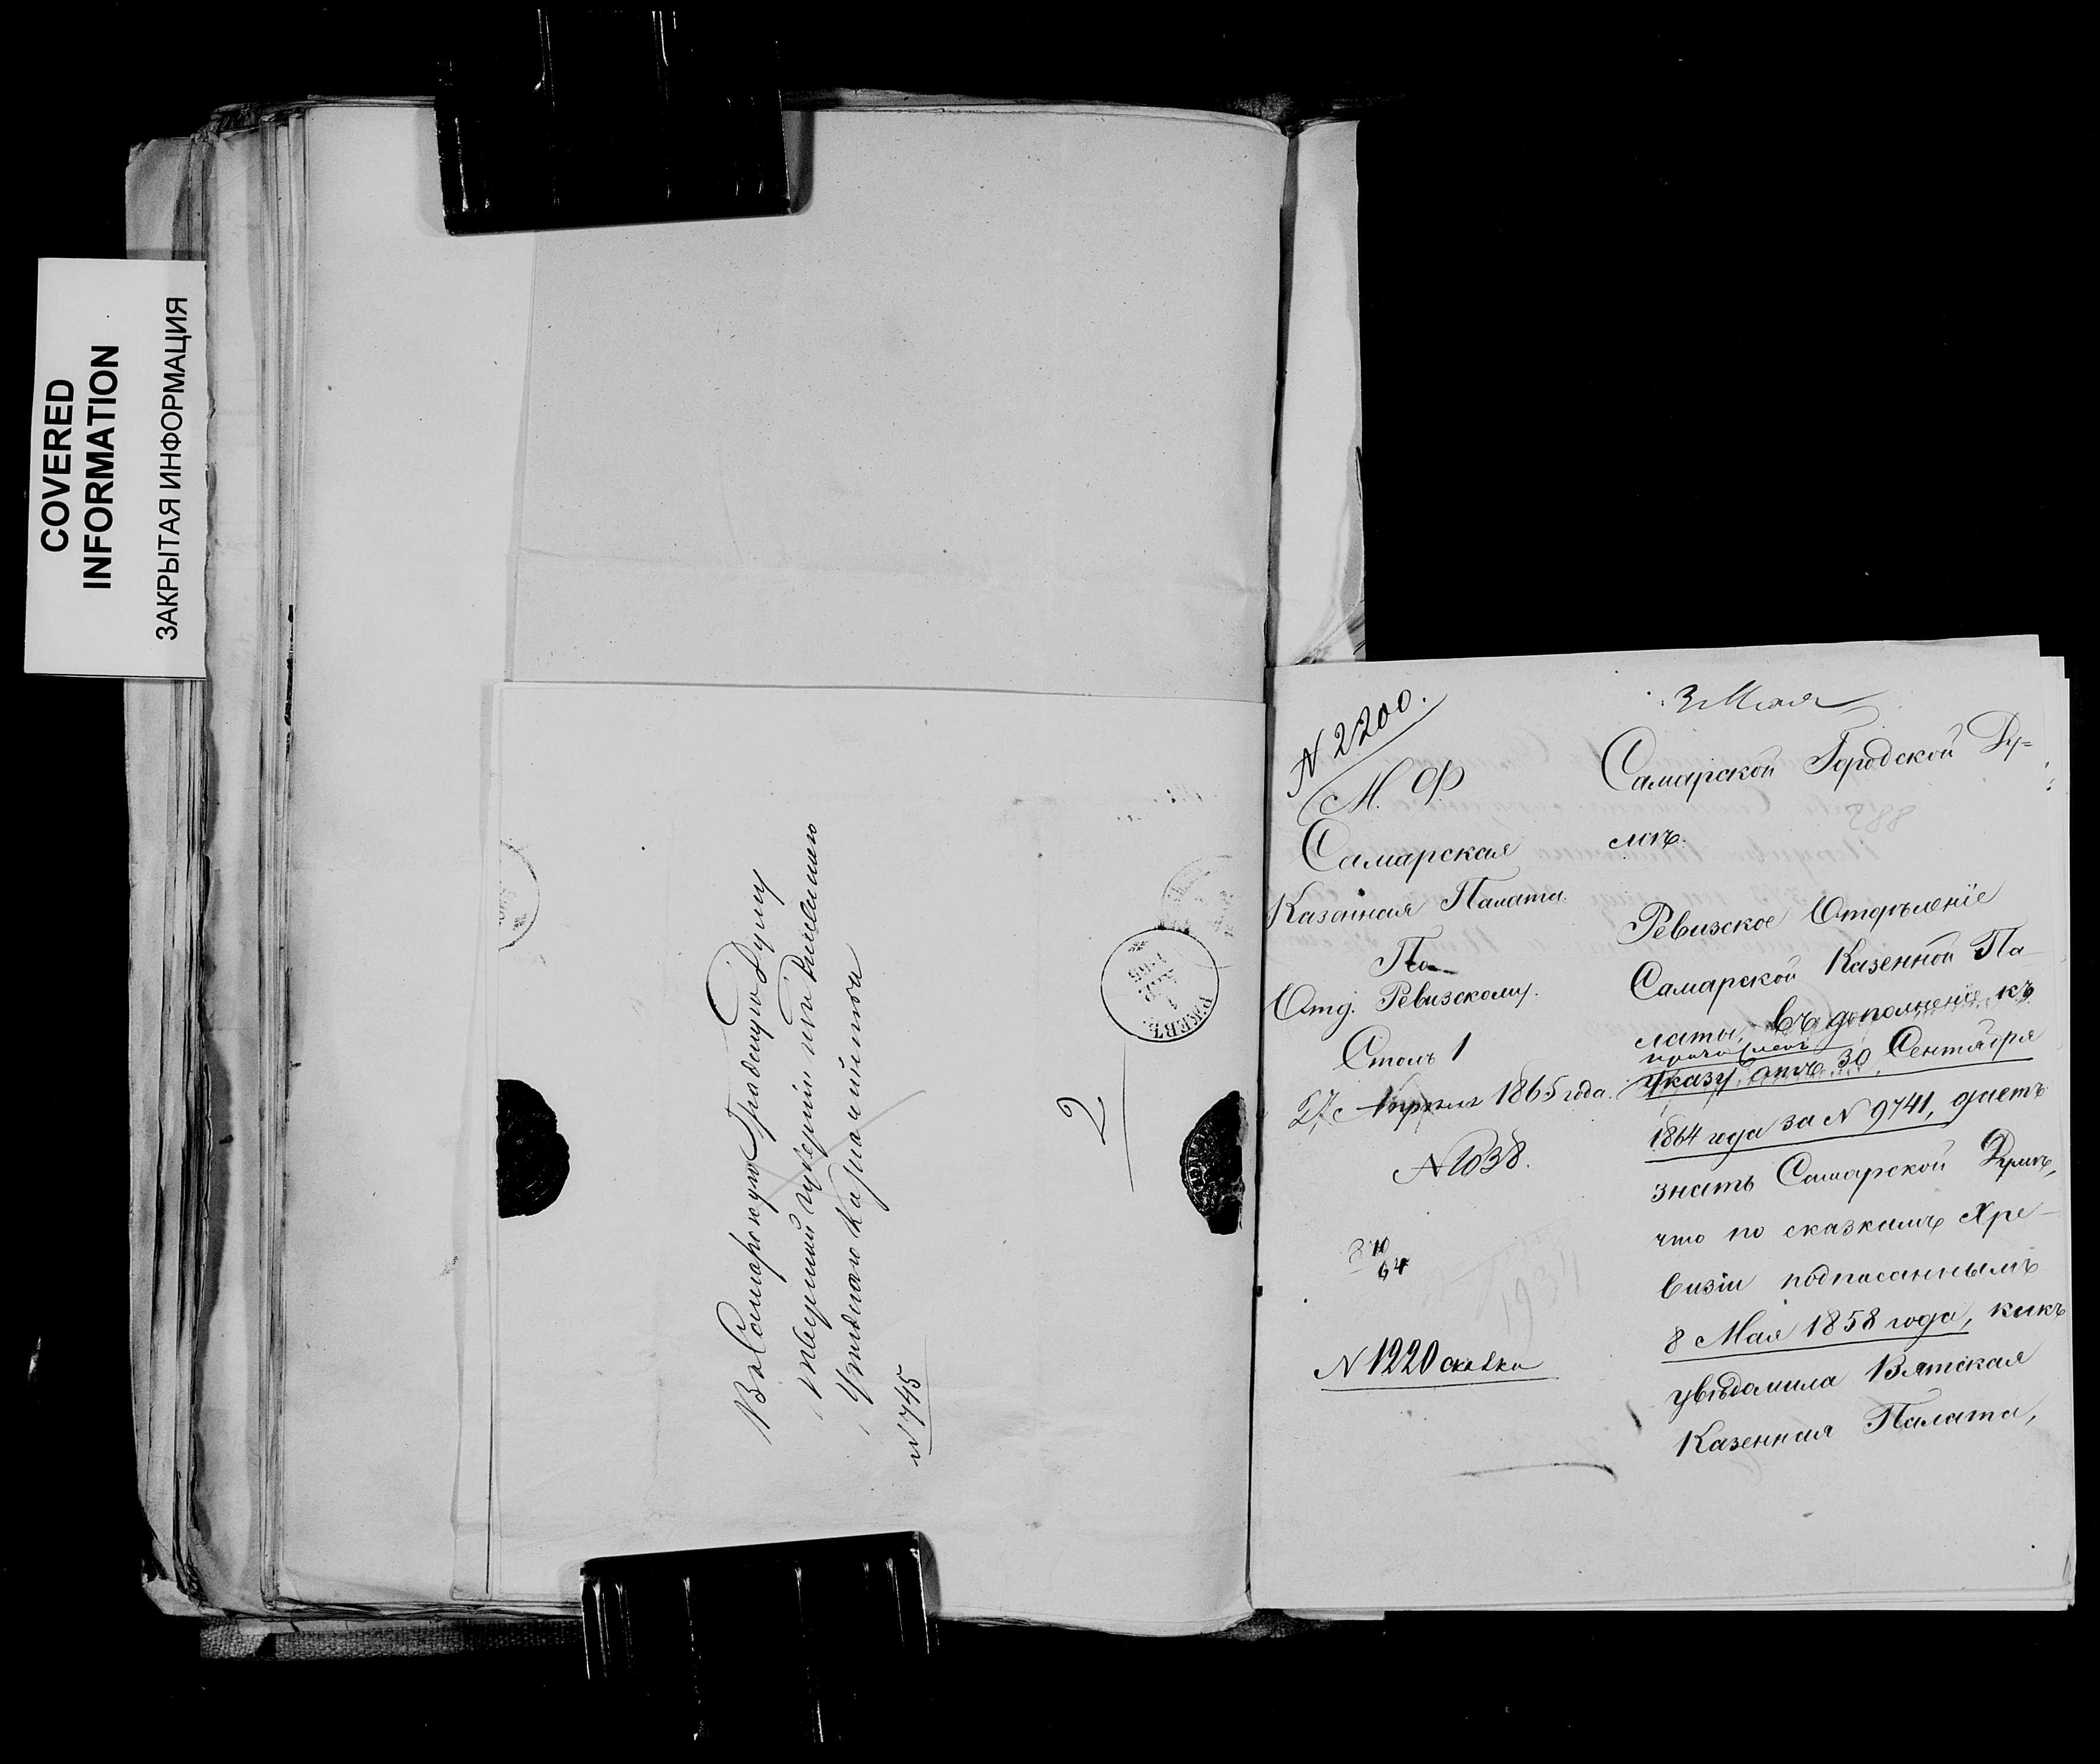 COVERED
INFORMATION
ЗАКРЫТАЯ ИНФОРМАЦИЯ
Въ Самарскую Градскую Думу
Тверской губерніи изъ Ржевскаго
Уѣзднаго Казначейства
№ 745
2
РЖЕВЪ
1
1865
№ 2200.
М. Ф
Самарская
Казенная Палата
По
Отд. Ревизскому.
Столъ 1
27 Апрѣля 1865 года.
№ 1038.
8 10
64
№ 1220 скавки
3 Мая
Самарской Городской Ду=
мѣ.
Ревизское Отдѣленіе
Самарской Казенной Па-
латы, въ дополненіе къ
указу отъ 30 Сентября
1864 года за № 9741, даетъ
знать Самарской Думѣ,
что по сказкамъ Х ре-
визіи подписаннымъ
8 Мая 1858 года, какъ
увѣдомила Вятская
Казенная Палата,